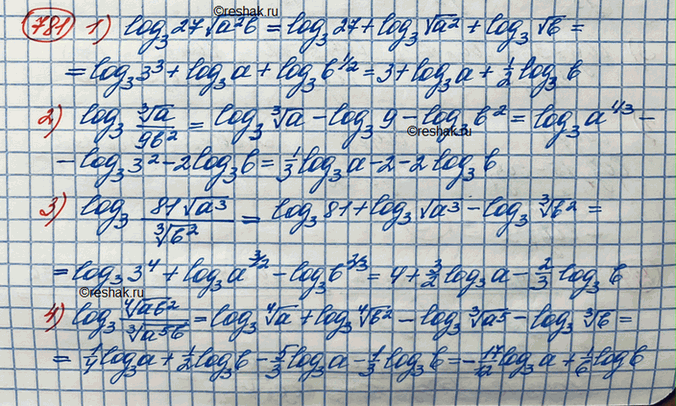 ©reshak.ru
781 1) log₃27√a²b = log₃27 + log₃√a² + log₃√b =
= log₃3³ + log₃a + log₃b^(1/2) = 3 + log₃a + 1/2 log₃b
2) log₃ ∛a/9b² = log₃∛a - log₃9 - log₃b² = log₃a^(1/3) -
©reshak.ru
- log₃3² - 2log₃b = 1/3 log₃a - 2 - 2log₃b
3) log₃ 81√a³/∛b² = log₃81 + log₃√a³ - log₃∛b² =
= log₃3⁴ + log₃a^(3/2) - log₃b^(2/3) = 4 + 3/2 log₃a - 2/3 log₃b
©reshak.ru
4) log₃ ∜ab²/∛a⁵b = log₃∜a + log₃∜b² - log₃∛a⁵ - log₃∛b =
= 1/4 log₃a + 1/2 log₃b - 5/3 log₃a - 1/3 log₃b = -17/12 log₃a + 1/6 log b